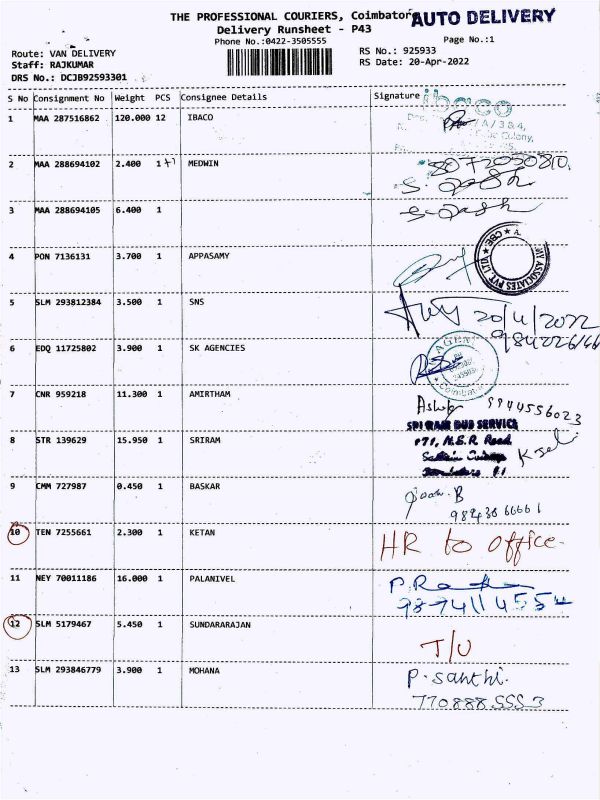 THE PROFESSIONAL COURIERS, Coimbator
AUTO DELIVERY
Delivery Runsheet - P43
Phone No.:0422-3505555
Page No.:1
Route: VAN DELIVERY
RS No.: 925933
Staff: RAJKUMAR
RS Date: 20-Apr-2022
DRS No.: DCJB92593301
S No Consignment No Weight PCS Consignee Details Signature
ibaco
1 MAA 287516862 120.000 12 IBACO
/A / 3 & 4,
Colony,
2 MAA 288694102 2.400 1+1 MEDWIN
S.
3 MAA 288694105 6.400 1
4 PON 7136131 3.700 1 APPASAMY
ASSOCIATES PVT. LTD. ★ CBE ★
5 SLM 293812384 3.500 1 SNS
20/4/2022
6 EDQ 11725802 3.900 1 SK AGENCIES
AGENC
Coimbat
7 CNR 959218 11.300 1 AMIRTHAM
9944556023
SRI RAM DUB SERVICE
8 STR 139629 15.950 1 SRIRAM
171, N.S.R. Road
9 CMM 727987 0.450 1 BASKAR
10 TEN 7255661 2.300 1 KETAN
HR to office
11 NEY 70011186 16.000 1 PALANIVEL
12 SLM 5179467 5.450 1 SUNDARARAJAN
T/U
13 SLM 293846779 3.900 1 MOHANA
P. santhi.
770888 5553